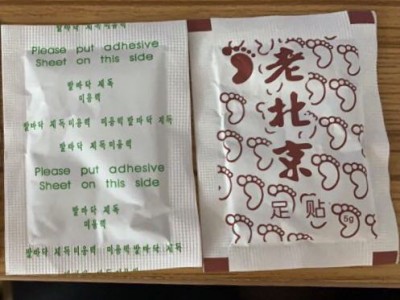 발바닥 제독 미용팩
Please put adhesive
Sheet on this side
발바닥 제독
미용팩
발바닥 제독 미용팩 미용팩 발바닥 제독
미용팩
Please put adhesive
Sheet on this side
발바닥 제독
미용팩
발바닥 제독 미용팩 미용팩 발바닥 제독
老北京
足贴
5g